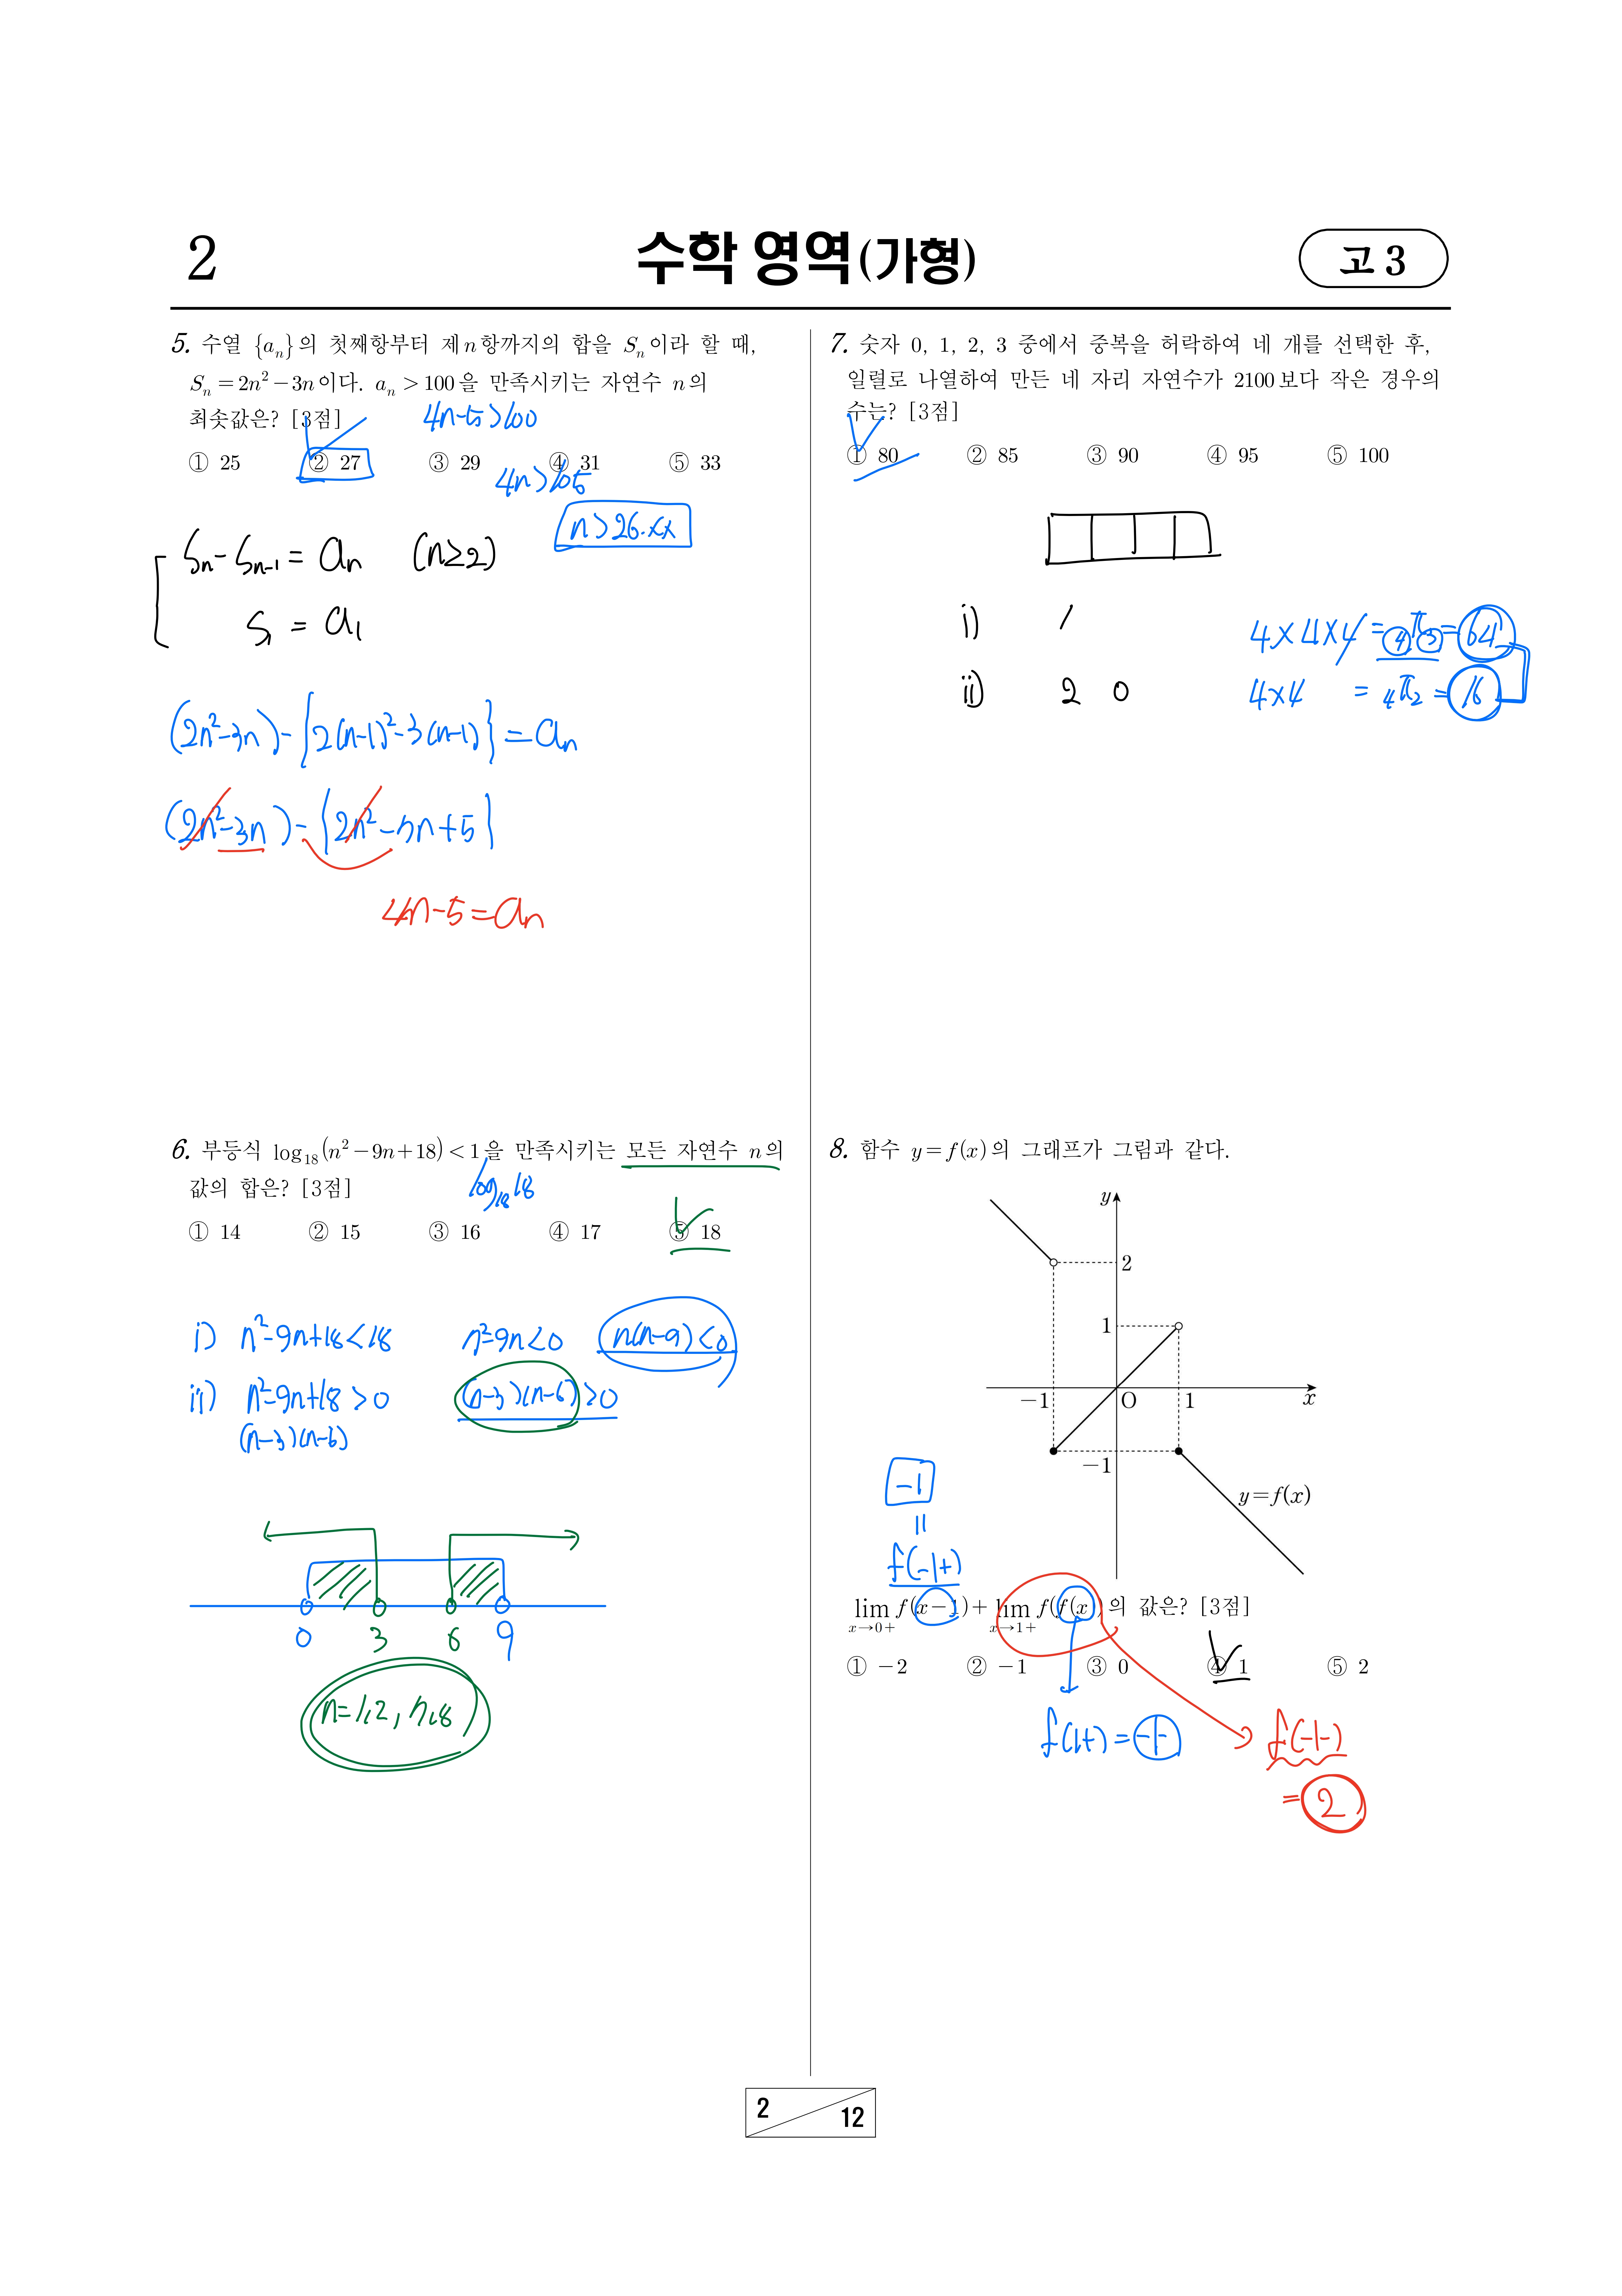 2
수학 영역(가형)
고 3
5. 수열 {aₙ}의 첫째항부터 제n항까지의 합을 Sₙ이라 할 때,
Sₙ = 2n² − 3n이다. aₙ > 100을 만족시키는 자연수 n의
최솟값은? [3점]
4n-5>100
① 25 ② 27 ③ 29 ④ 31 ⑤ 33
4n>105
n>26.xx
Sₙ - Sₙ₋₁ = aₙ (n≥2)
S₁ = a₁
(2n²-3n) - {2(n-1)²-3(n-1)} = aₙ
(2n²-3n) - {2n²-7n+5}
4n-5=aₙ
6. 부등식 log₁₈(n² − 9n + 18) < 1을 만족시키는 모든 자연수 n의
값의 합은? [3점]
log₁₈18
① 14 ② 15 ③ 16 ④ 17 ⑤ 18
i) n²-9n+18<18 n²-9n<0 n(n-9)<0
ii) n²-9n+18>0 (n-3)(n-6)>0
(n-3)(n-6)
0 3 6 9
n=1,2,7,8
7. 숫자 0, 1, 2, 3 중에서 중복을 허락하여 네 개를 선택한 후,
일렬로 나열하여 만든 네 자리 자연수가 2100보다 작은 경우의
수는? [3점]
① 80 ② 85 ③ 90 ④ 95 ⑤ 100
i) 1 4×4×4 = ₄π₃ = 64
ii) 2 0 4×4 = ₄π₂ = 16
8. 함수 y = f(x)의 그래프가 그림과 같다.
y
2
1
−1 O 1 x
−1
y=f(x)
-1
=
f(-1+)
lim f(x−1) + lim f(f(x))의 값은? [3점]
x→0+ x→1+
① −2 ② −1 ③ 0 ④ 1 ⑤ 2
f(1+) = -1- f(-1-)
= 2
2
12